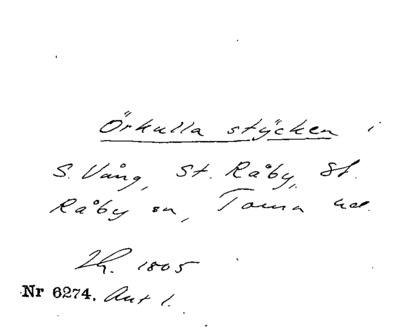 Örkulla stycken i
S. Vång, St. Råby, St.
Råby sn, Torna hd.
1805
Nr 6274. Akt 1.